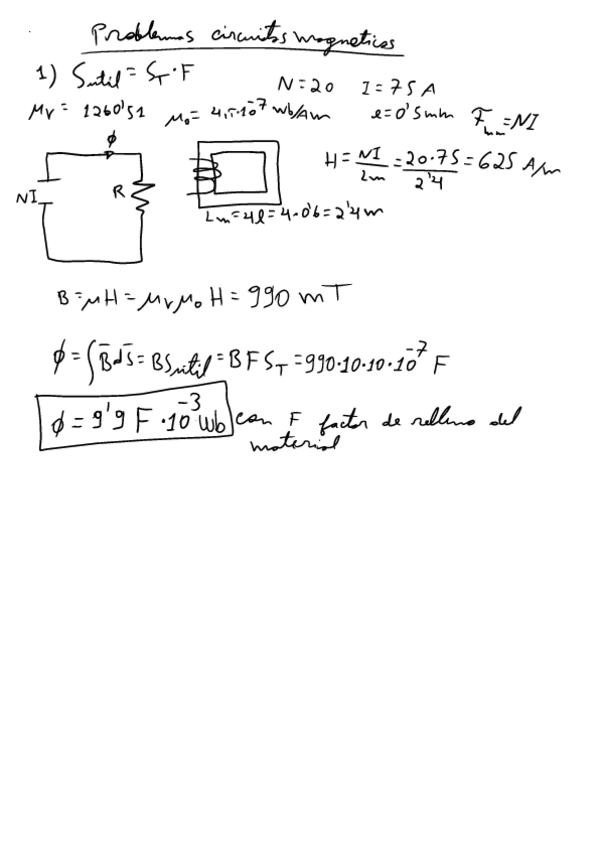 Problemas circuitos magneticos
1) Sutil = S_T · F
N = 20 I = 75 A
μr = 1260'51 μ₀ = 4π·10⁻⁷ Wb/Am e = 0'5mm F_mm = NI
H = NI/Lm = 20·75/2'4 = 625 A/m
ϕ
NI R
Lm = 4l = 4·0'6 = 2'4m
B = μH = μrμ₀ H = 990 mT
ϕ = ∫B̄ds̄ = BSutil = B F S_T = 990·10·10·10⁻⁷ F
ϕ = 9'9 F · 10⁻³ Wb con F factor de relleno del
material